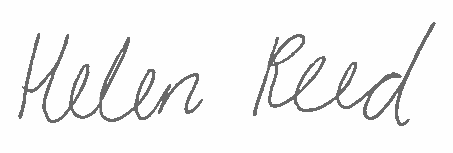 Helen Reed